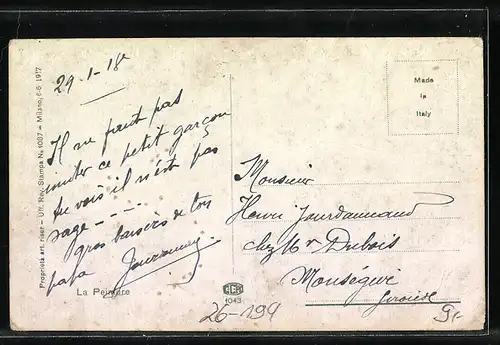 Proprietà art. riser. - Uff. Rev. Stampa No 1087 - Milano, 6-6 1917
29-1-18
Il ne faut pas
imiter ce petit garçon
tu vois il n'est pas
sage - - - -
gros baisers de ton
papa
La Peintre
Made
in
Italy
Monsieur
Henri Jourdanneaud
chez Mr Dubois
Monségur
Gironde
CCM
1043
26-194
9,-